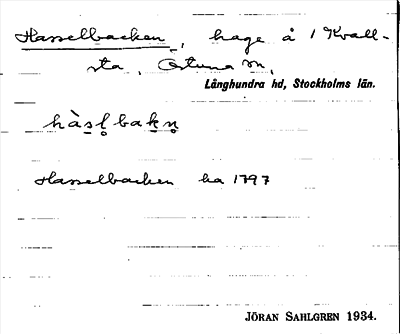 Hasselbacken, hage å 1 Kvall-
sta, Östuna sn,
Långhundra hd, Stockholms län.
hàs̱l̥bakn̥
Hasselbacken ha 1797
JÖRAN SAHLGREN 1934.